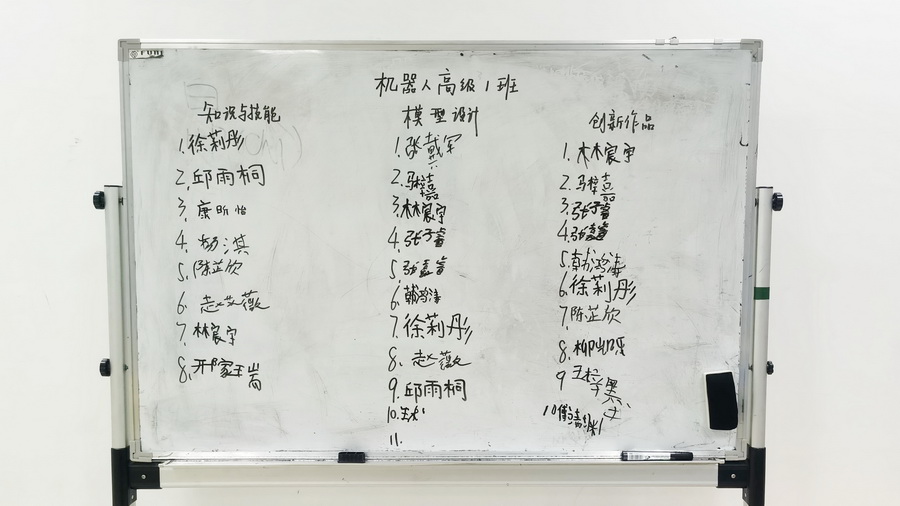 机器人高级1班
知识与技能
1.徐莉彤
2.邱雨桐
3.康昕怡
4.杨淇
5.陈芷欣
6.赵艾薇
7.林宸宇
8.邢家瑞
模型设计
1.张戴军
2.马梓嘉
3.林宸宇
4.张子睿
5.张嘉睿
6.韩鸿涛
7.徐莉彤
8.赵薇
9.邱雨桐
10.
11.
创新作品
1.林宸宇
2.马梓嘉
3.张子睿
4.张嘉睿
5.韩鸿涛
6.徐莉彤
7.陈芷欣
8.柳
9
10